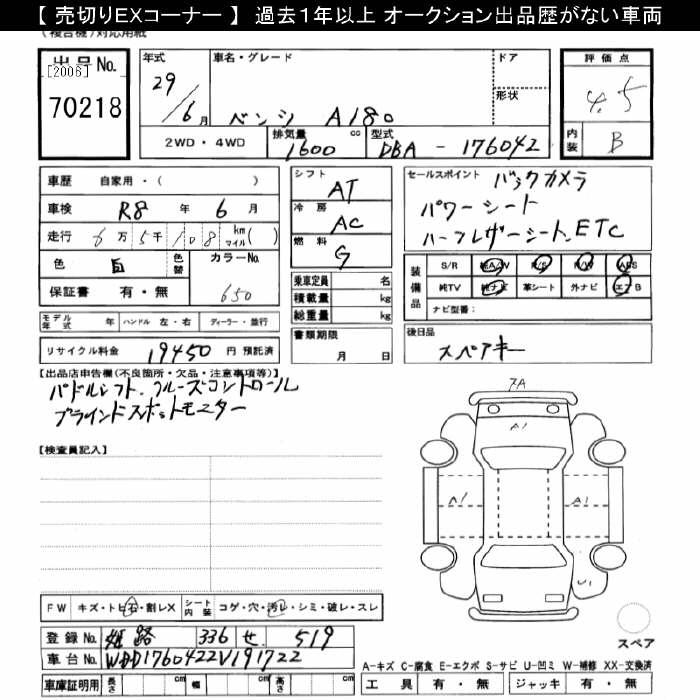 【 売切りEXコーナー 】 過去1年以上 オークション出品歴がない車両
(複合機)対応用紙
出品No.
[2006]
70218
年式
29/6月
車名・グレード
ベンツ A180
ドア
形状
評価点
4.5
内装
B
2WD・4WD
排気量 1600 cc
型式 DBA - 176042
車歴 自家用・( )
車検 R8 年 6 月
走行 6万5千108 km マイル( )
色 白 色替 カラーNo. 650
保証書 有・無
シフト AT
冷房 AC
燃料 G
乗車定員 名
積載量 kg
総重量 kg
セールスポイント バックカメラ
パワーシート
ハーフレザーシート、ETC
装備品
S/R 純A/W P/S P/W ABS
純TV 純ナビ 革シート 外ナビ エアB
ナビ型番:
モデル年式 年 ハンドル 左・右 ディーラー・並行
書類期限
月 日
後日品
スペアキー
リサイクル料金 19450 円 預託済
【出品店申告欄(不良箇所・欠品・注意事項等)】
パドルシフト、クルーズコントロール
ブラインドスポットモニター
【検査員記入】
A1
A1
A1
U1
FW キズ・トビ石・割レX シート内装 コゲ・穴・汚レ・シミ・破レ・スレ
登録No. 姫路 336 せ 519
車台No. WDD1760422V191722
スペア
A-キズ C-腐食 E-エクボ S-サビ U-凹ミ W-補修 XX-交換済
車庫証明用 長さ cm 幅 cm 高さ cm
工具 有・無 ジャッキ 有・無